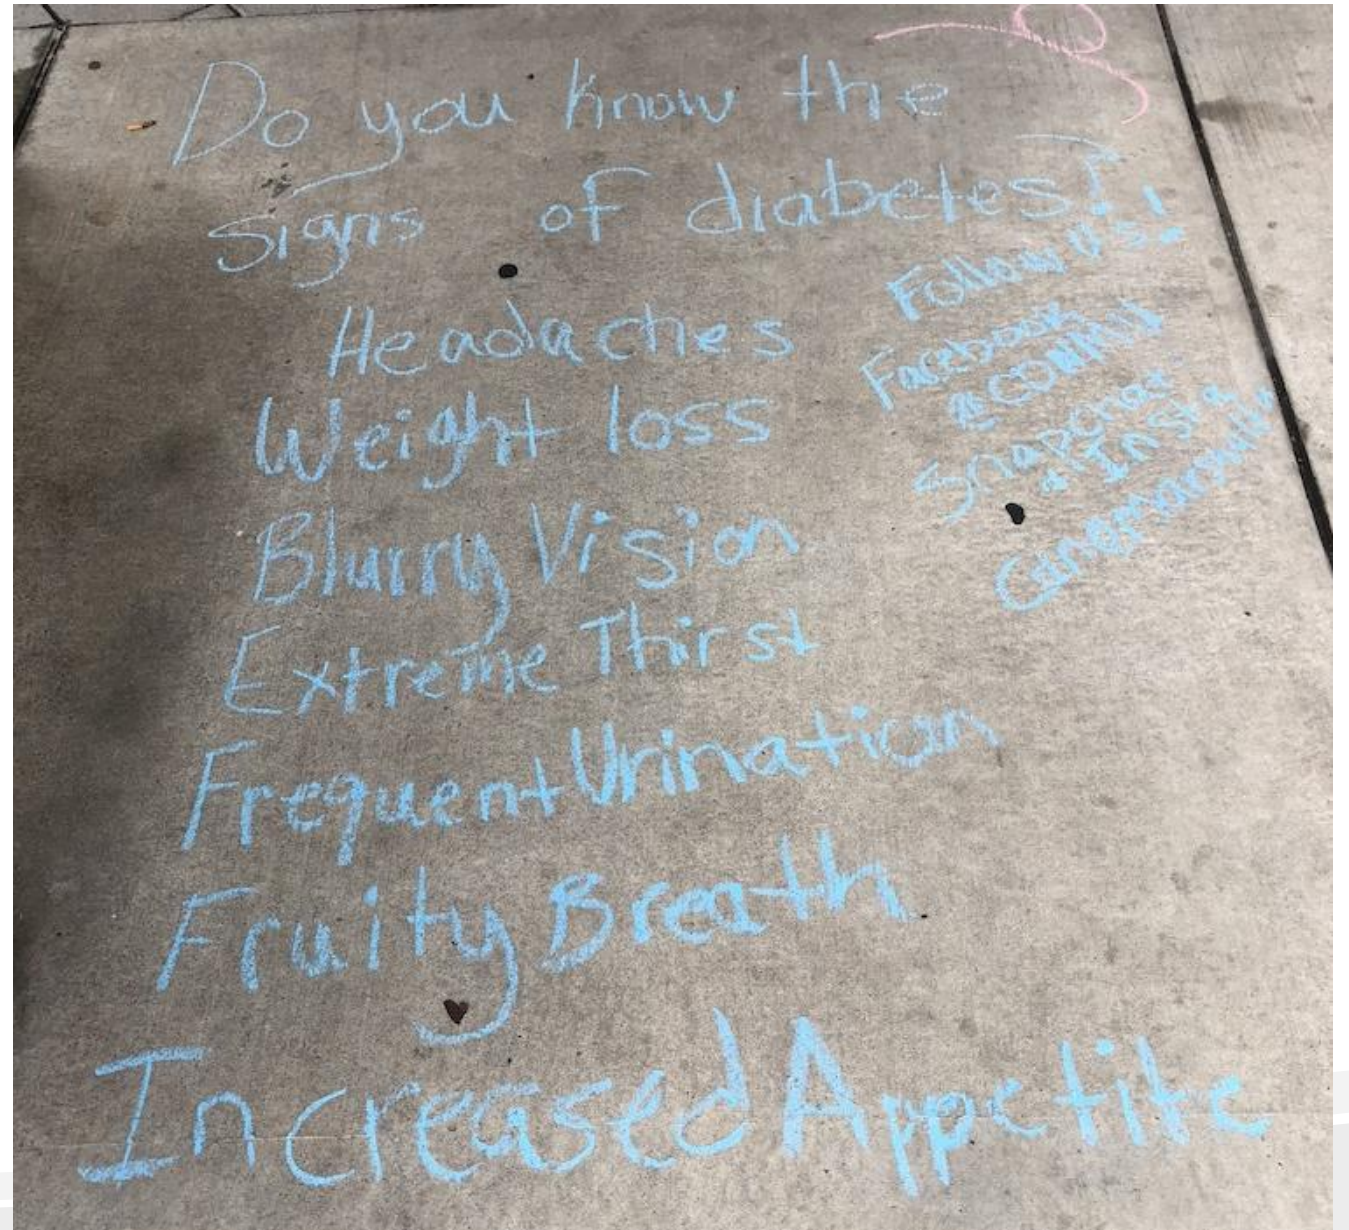 Do you know the
signs of diabetes?
Headaches
Weight loss
Blurry Vision
Extreme Thirst
Frequent Urination
Fruity Breath
Increased Appetite
Follow Us!
Facebook
Insta